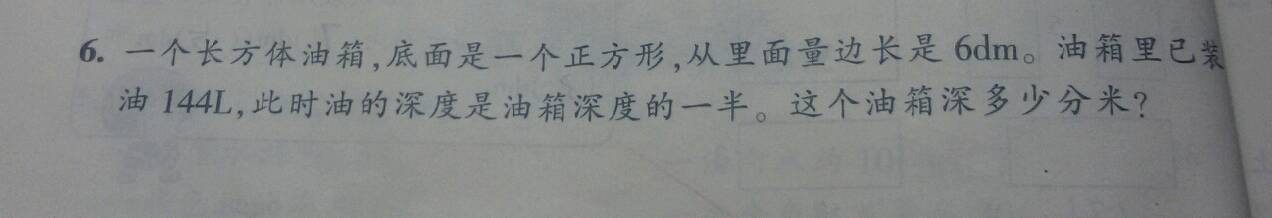 6. 一个长方体油箱,底面是一个正方形,从里面量边长是 6dm。油箱里已装
油 144L,此时油的深度是油箱深度的一半。这个油箱深多少分米?